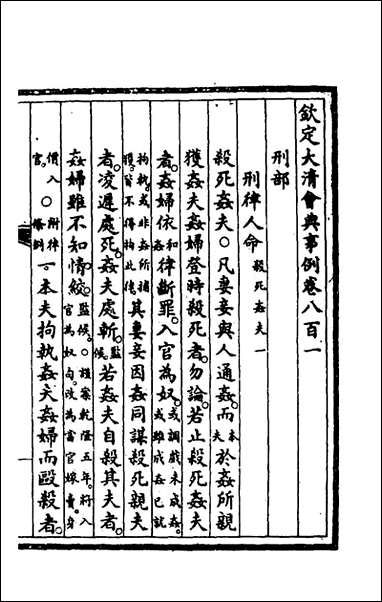 欽定大清會典事例卷八百一
刑部
刑律人命殺死姦夫一
殺死姦夫○凡妻妾與人通姦。而本夫於姦所親
獲姦夫姦婦登時殺死者。勿論。若止殺死姦夫
者。姦婦依和姦律斷罪。入官為奴。或調戲未成姦。或雖成姦已就
拘執。或非姦所捕獲。皆不得拘此律。其妻妾因姦同謀殺死親夫
者。凌遲處死。姦夫處斬。監候。若姦夫自殺其夫者。
姦婦雖不知情絞。監候。○謹案乾隆五年。將入官為奴句。改為當官嫁賣。身
價入官。○附律條例一。本夫拘執姦夫姦婦而毆殺者。